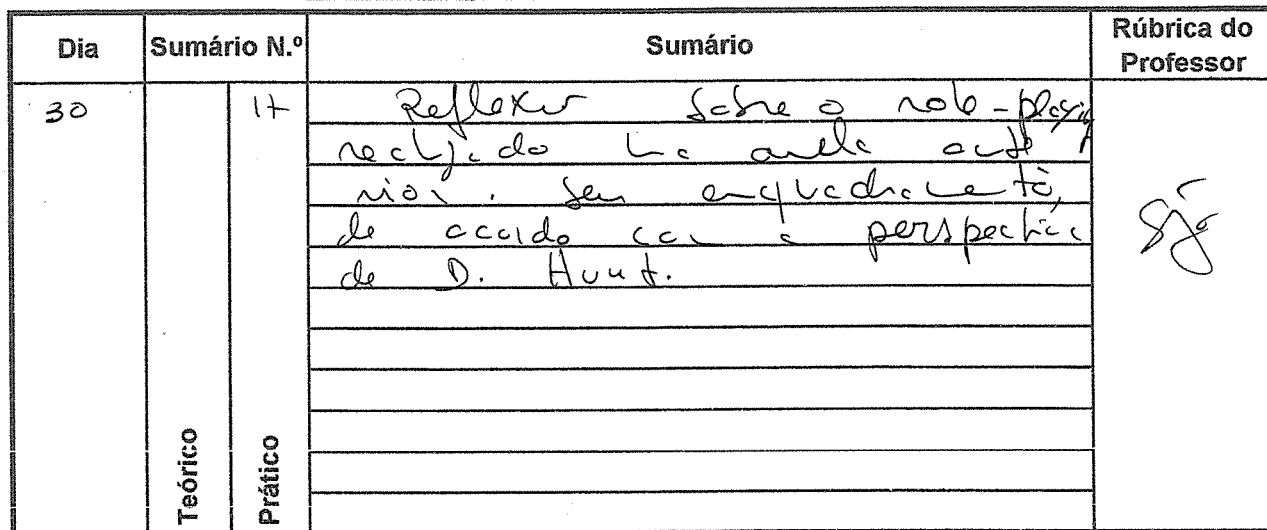 Dia Sumário N.º Sumário Rúbrica do Professor
30 17 Reflexão sobre o role-playing
realizado na aula ante
rior. Seu enquadramento,
de acordo com a perspectiva
de D. Hunt.
Teórico Prático